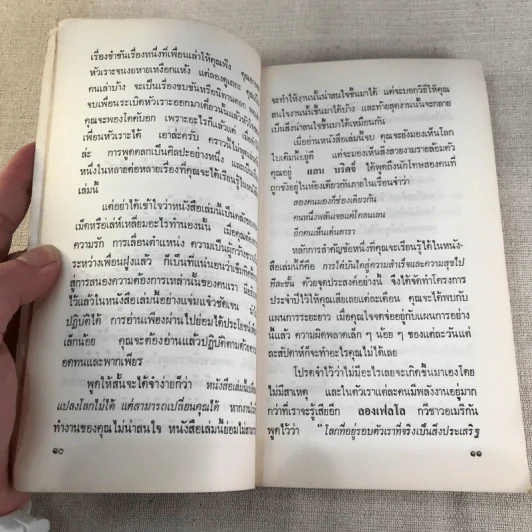 เรื่องขำขันเรื่องหนึ่งที่เพื่อนเล่าให้คุณฟัง
หัวเราะจนงอหายเหงือกแห้ง แต่ลองดูเถอะ
คนเล่าบ้าง จะเป็นเรื่องขบขันหรือนิทานตลก
จบเพื่อนระเบิดหัวเราะออกมาเดี๋ยวนั้นแล้ว
คุณจะพองโตคับอก เพราะอะไรก็แล้วแต่
เพื่อนหัวเราะได้ เอาล่ะครับ คราวนี้ไม่
ล่ะ การพูดตลกเป็นศิลปะอย่างหนึ่ง และ
หนึ่งในหลายต่อหลายเรื่องที่คุณจะได้เรียนรู้ใน
เล่มนี้
แต่อย่าได้เข้าใจว่าหนังสือเล่มนี้เป็นคลัง
เม็คหรือเล่ห์เหลี่ยมอะไรทำนองนั้น เมื่อคุณ
ความรัก การเลื่อนตำแหน่ง ความเป็นผู้กว้างขวาง
ระหว่างเพื่อนฝูงแล้ว ก็เป็นที่แน่นอนว่า
สู่การสนองความต้องการเหล่านั้นของเรา มี
ไว้แล้วในหนังสือเล่มนี้อย่างแจ่มแจ้วชัดเจน
ปฏิบัติได้ การอ่านเพียงผ่านไปย่อมได้ประโยชน์
เล็กน้อย คุณจะต้องอ่านแล้วปฏิบัติตามด้วยความ
อดทนและพากเพียร
พูดให้สั้นจะได้จำง่ายก็ว่า หนังสือเล่มนี้
แปลงโลกไม่ได้ แต่สามารถเปลี่ยนคุณได้ หาก
ทำงานของคุณไม่น่าสนใจ หนังสือเล่มนี้ย่อมไม่สามารถ
๑๐
จะทำให้งานนั้นน่าสนใจขึ้นมาได้ แต่จะบอกวิธีให้คุณ
สนใจงานนั้นขึ้นมาได้บ้าง และท้ายสุดงานนั้นจะกลาย
เป็นสิ่งน่าสนใจขึ้นมาได้เหมือนกัน
เมื่ออ่านหนังสือเล่มนี้จบ คุณจะยังมองเห็นโลก
ใบเดิมนี้อยู่ดี แต่จะมองเห็นสิ่งสวยงามรายล้อมตัว
คุณอยู่ แลน บริดจ์ ได้พูดถึงนักโทษสองคนที่
ถูกขังอยู่ในห้องเดียวกันภายในเรือนจำว่า
สองคนมองที่ช่องเดียวกัน
คนหนึ่งพลันเจอแต่โคลนเลน
อีกคนเห็นเด่นดารา
หลักการสำคัญข้อหนึ่งที่คุณจะเรียนรู้ได้ในหนัง-
สือเล่มนี้ก็คือ การไต่บันไดสู่ความสำเร็จและความสุขไป
ทีละขั้น ด้วยจุดประสงค์อย่างนี้ จึงได้จัดทำโครงการ
ประจำปีไว้ให้คุณเสียเลยแต่ละเดือน คุณจะได้พบกับ
แผนการระยะยาว เมื่อคุณใจจดจ่ออยู่กับแผนการอย่าง
นี้แล้ว ความผิดพลาดเล็ก ๆ น้อย ๆ ของแต่ละวันแต่
ละสัปดาห์ก็จะทำอะไรคุณไม่ได้เลย
โปรดจำไว้ว่าไม่มีอะไรเลยจะเกิดขึ้นมาเองโดย
ไม่มีสาเหตุ และในตัวเราแต่ละคนมีพลังงานอยู่มาก
กว่าที่เราจะรู้เสียอีก ลองเฟลโล กวีชาวอเมริกัน
พูดไว้ว่า “โลกที่อยู่รอบตัวเราที่จริงเป็นสิ่งประเสริฐ
๑๑